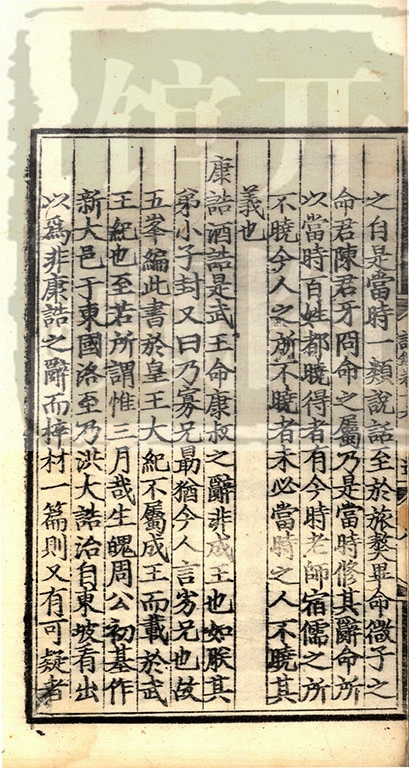 之自是當時一類說話至於旅獒畢命微子之
命君陳君牙冏命之屬乃是當時修其辭命所
以當時百姓都曉得者有今時老師宿儒之所
不曉今人之所不曉者未必當時之人不曉其
義也
康誥酒誥是武王命康叔之辭非成王也如朕其
弟小子封又曰乃寡兄勗猶今人言劣兄也故
五峯編此書於皇王大紀不屬成王而載於武
王紀也至若所謂惟三月哉生魄周公初基作
新大邑于東國洛至乃洪大誥治自東坡看出
以爲非康誥之辭而梓材一篇則又有可疑者